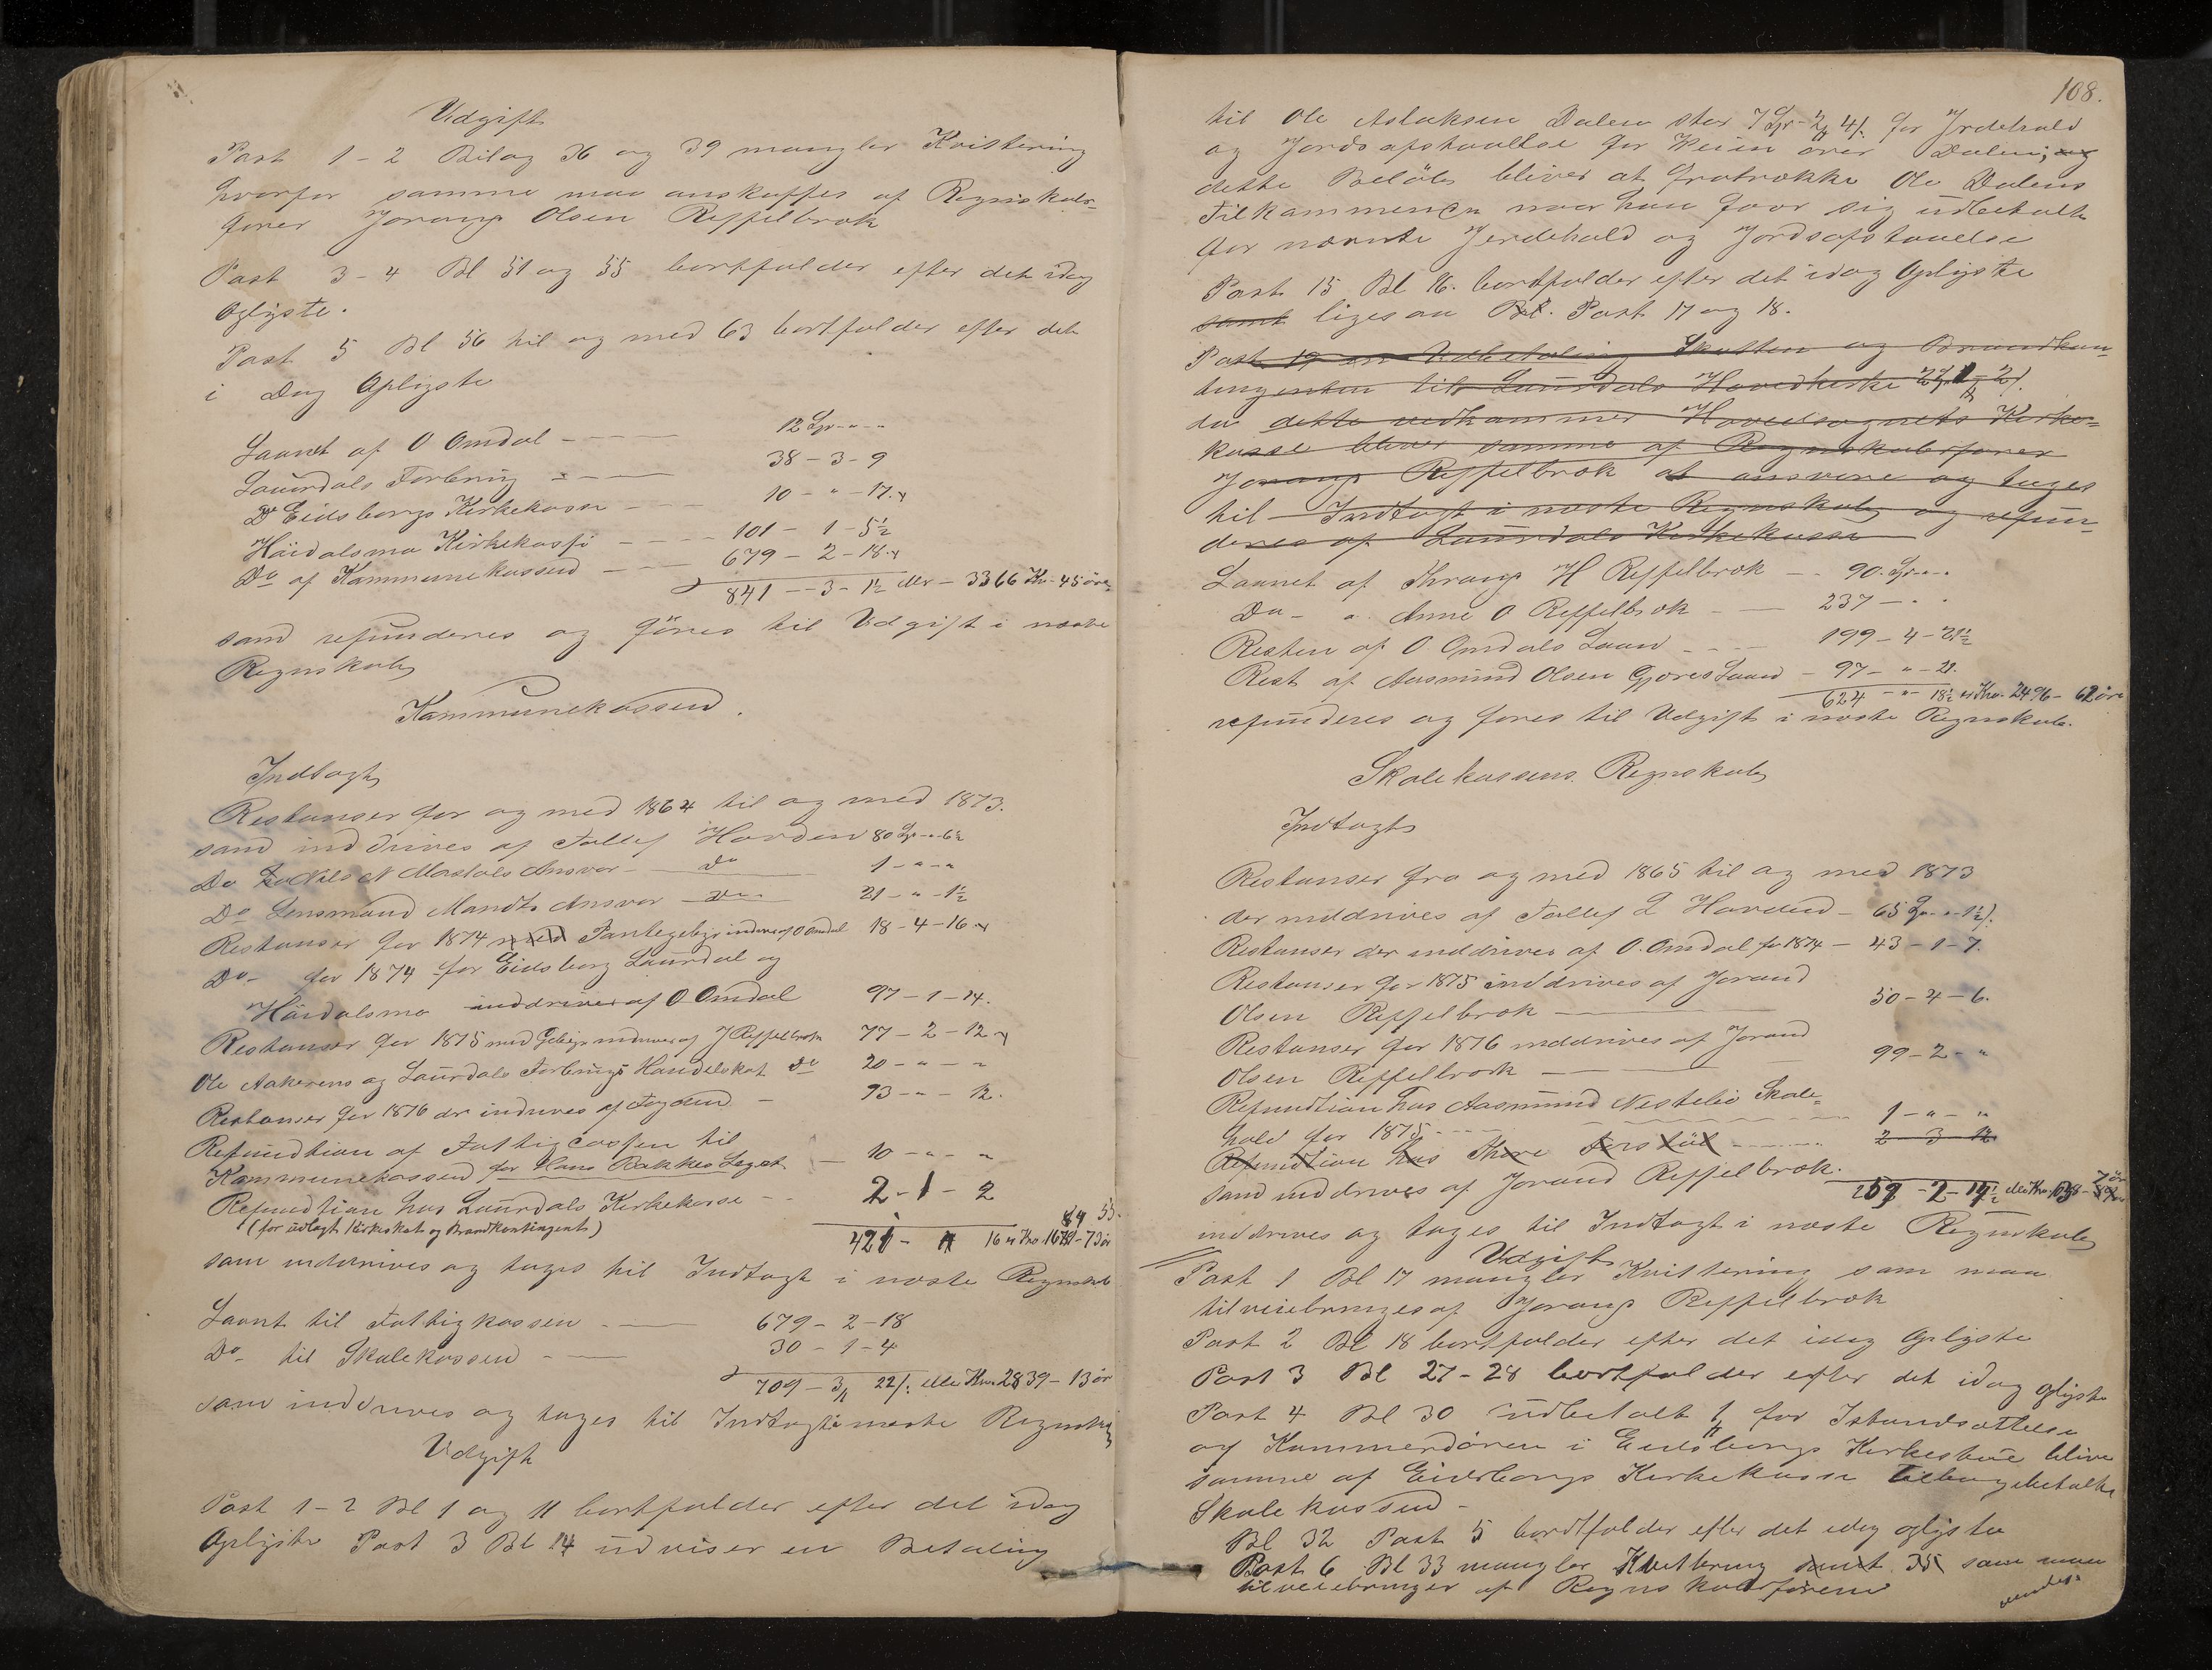 Udgift
Post 1-2 Bilag 36 og 39 mangler Kvittering
hvorfor samme maa anskaffes af Regnskabs-
fører Jorang Olsen Reppelbrok
Post 3-4 Bl 51 og 55 bortfalder efter det idag
Oplyste.
Post 5 Bl 56 til og med 63 bortfalder efter det
i Dag Oplyste
Laanet af O Omdal - 12 Spr - -
Laurdals Forbring - 38 - 3 - 9
Do Eidsborgs Kirkekasse - 10 - " - 17.
Høidalsmo Kirkekasse - 101 - 1 - 5½
Do af Kommunekassen - 679 - 2 - 18.
841 - 3 - 1½ eller - 3366 Kr - 45 øre
som refunderes og føres til Udgift i næste
Regnskab
Kommunekassen.
Indtægt
Restanser for og med 1864 til og med 1873.
som inddrives af Tallef Havden 80 Sp - " - 6½
Do Nils N Mostøls Ansvar - do 1 - " - "
Do Lensmand Mandts Ansvar - do 21 - " - 1½
Restanser for 1874 med Pantegebyr inddrives af O Omdal 18 - 4 - 16
Do - for 1874 for Eidsborg Laurdal og
Høidalsmo inddrives af O Omdal 97 - 1 - 14.
Restanser for 1875 med Gebyr inddrives af J Reppelbrok 77 - 2 - 12
Ole Aakerens og Laurdals Forbrugs Handelskat do 20 - " - "
Restanser for 1876 der inddrives af Fogden - 93 - " - 12.
Refundtion af Fattigcassen til
Kommunekassen for Hans Bakkes Legat - 10 - " - "
Refundtion hos Laurdals Kirkekasse - 2 - 1 - 2
(for udlagt Kirkeskat og Brandkontingent)
84 53.
421 - 16 er Kro. 1678 - 73 ør
som inddrives og tages til Indtægt i næste Regnskab
Laant til Fattigkassen - 679 - 2 - 18
Do - til Skolekassen - 30 - 1 - 4
709 - 3 22/. eller Kro. 2839 - 13 ør
som inddrives og tages til Indtægt i næste Regnskab
Udgift
Post 1-2 Bl 1 og 11 bortfalder efter det idag
Oplyste Post 3 Bl 14 udviser en Betaling
108.
til Ole Aslaksen Dalen stor 7 Spr - 2 4/. for Gjrdehold
og Jordsafstaaelse for Veien over Dalen; og
dette Beløb bliver at fratrække Ole Dalens
Tilkommende naar han faar sig udbetalt
for nævnte Gjerdehold og Jordsafstaaelse
Post 15 Bl 16. bortfalder efter det idag Oplyste
samt ligesaa Bl. Post 17 og 18.
Post 19 en Udbetaling Skatten og Brandkon-
tingenten til Laurdals Hovedkirke 2 Sp 1 - 2/.
da dette vedkommer Hovedsognets Kirke-
kasse bliver samme af Regnskabsfører
Jorang Reppelbrok at ansvare og tages
til Indtægt i næste Regnskab og refun-
deres af Laurdals Kirkekasse
Laanet af Thrang H Reppelbrok - 90. Sp - "
Do - a. Anne O Reppelbrok - 237 - " "
Resten af O. Omdals Laan - 199 - 4 - 21½
Rest af Aasmund Olsen Gjøres Laan - 97 - " - 21.
624 - " - 18½ er Kro. 2496 - 62 øre
refunderes og føres til Udgift i næste Regnskab.
Skolekassens Regnskab
Indtægt
Restanser fra og med 1865 til og med 1873
der inddrives af Tallef L Havden - 65 Sp - " - 1½/.
Restanser der inddrives af O. Omdal for 1874 - 43 - 1 - 7.
Restanser for 1875 inddrives af Jorand
Olsen Reppelbrok - 50 - 4 - 6.
Restanser for 1876 inddrives af Jorand
Olsen Reppelbrok - 99 - 2 - "
Refundtion hos Aasmund Nestebø Skole-
hold for 1875 - 1 - " - "
Refundtion hos Thore 2 - 3 - 12
som inddrives af Jorand Reppelbrok. 259 - 2 - 14½ eller Kro
inddrives og tages til Indtægt i næste Regnskab
Udgift
Post 1 Bl 17 mangler Kvittering som maa
tilveiebringes af Jorang Reppelbrok
Post 2 Bl 18 bortfalder efter det idag Oplyste
Post 3 Bl 27-28 bortfalder efter det idag oplyste
Post 4 Bl 30 udbetalt 1 for Istandsættelse
af Kammerdøren i Eidsborgs Kirkestue blive
samme af Eidsborgs Kirkekasse tilbagebetalte
Skolekassen -
Bl 32 Post 5 bortfalder efter det idag oplyste
Post 6 Bl 33 mangler Kvittering samt 35 som maa
tilveiebringes af Regnskabsføreren
vendes.